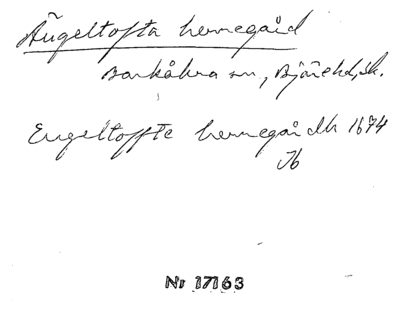 Ängeltofta herregård
Barkåkra sn, Bjäre hd, Sk.
Engeltoffte herregård 1674
Jb
Nr 17163